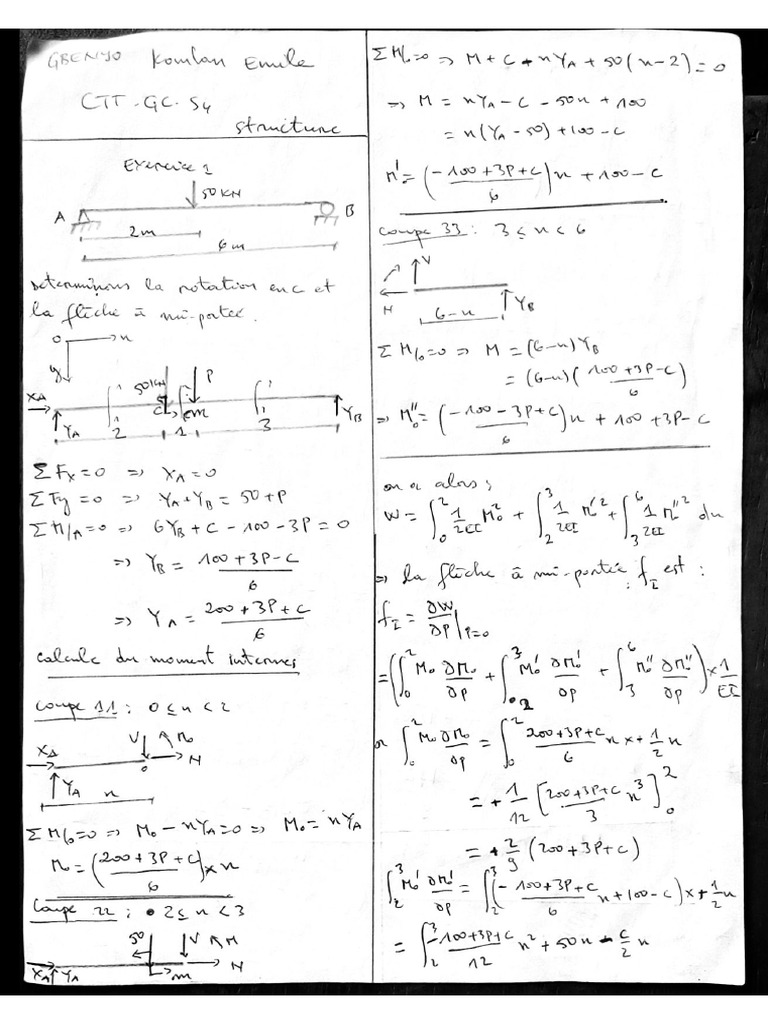 GBENYO Komlan Emile
CTT-GC-S4
structure
Exercice 1
50 KN
A
B
2m
6m
Determinons la rotation en c et
la flèche à mi-portée.
o
x
y
XA
50KN
P
C
m
YA
YB
2
1
3
ΣFx=0 => XA=0
ΣFy=0 => YA+YB=50+P
ΣM/A=0 => 6YB+C-100-3P=0
=> YB = (100+3P-C)/6
=> YA = (200+3P+C)/6
calcule du moment internes
coupe 11 : 0≤x<2
XA
V
M0
N
o
YA
x
ΣM/o=0 => M0-xYA=0 => M0=xYA
M0=((200+3P+C)/6)×x
Coupe 22 : 2≤x<3
50
V
M
N
XA
YA
m
ΣM/o=0 => M+C+xYA+50(x-2)=0
=> M = xYA-C-50x+100
= x(YA-50)+100-C
M'=((-100+3P+C)/6)x+100-C
coupe 33 : 3≤x<6
V
M
6-x
YB
ΣM/o=0 => M=(6-x)YB
=(6-x)((100+3P-C)/6)
=> M''0=((-100-3P+C)/6)x+100+3P-C
on a alors ;
W=∫₀² 1/2EI M0² + ∫₂³ 1/2EI M'² + ∫₃⁶ 1/2EI M''² dx
=> la flèche à mi-portée fI est :
fI = ∂W/∂P|P=0
=(∫₀² M0 ∂M0/∂P + ∫₂³ M0' ∂M0'/∂P + ∫₃⁶ M0'' ∂M0''/∂P)×1/EI
or ∫₀² M0 ∂M0/∂P = ∫₀² (200+3P+C)/6 x × 1/2 x
= + 1/12 [(200+3P+C)/3 x³]₀²
= + 2/9 (200+3P+C)
∫₂³ M0' ∂M0'/∂P = ∫₂³ ((-100+3P+C)/6 x+100-C)× 1/2 x
= ∫₂³ (-100+3P+C)/12 x²+50x - C/2 x